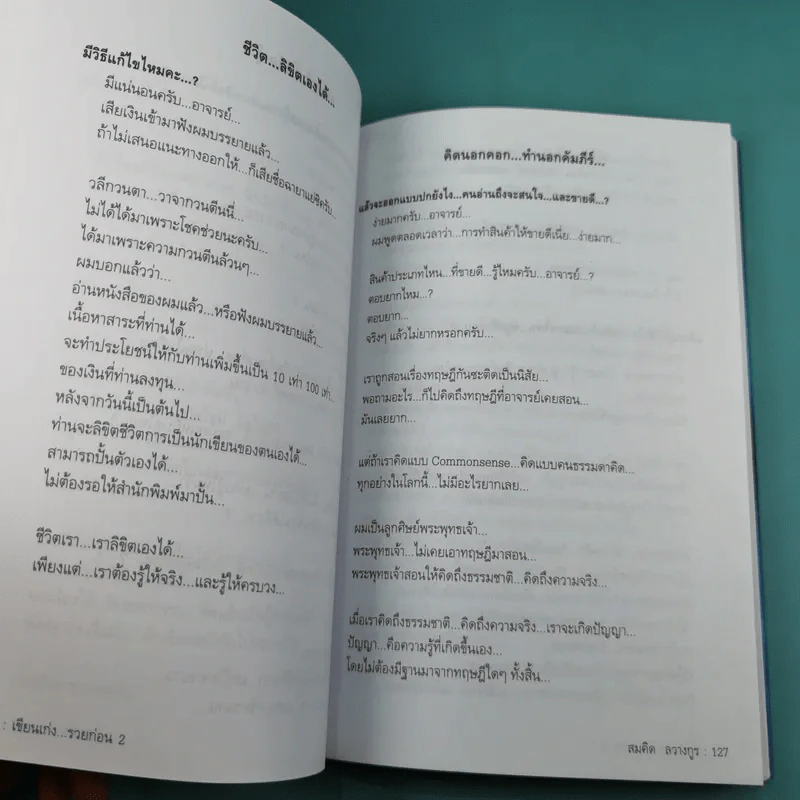 ชีวิต...ลิขิตเองได้...
มีวิธีแก้ไขไหมคะ...?
มีแน่นอนครับ...อาจารย์...
เสียเงินเข้ามาฟังผมบรรยายแล้ว...
ถ้าไม่เสนอแนะทางออกให้...ก็เสียชื่อฉายาแย่ซิครับ...
วลีกวนตา...วาจากวนตีนนี่...
ไม่ได้ได้มาเพราะโชคช่วยนะครับ...
ได้มาเพราะความกวนตีนล้วนๆ...
ผมบอกแล้วว่า...
อ่านหนังสือของผมแล้ว...หรือฟังผมบรรยายแล้ว...
เนื้อหาสาระที่ท่านได้...
จะทำประโยชน์ให้กับท่านเพิ่มขึ้นเป็น 10 เท่า 100 เท่า...
ของเงินที่ท่านลงทุน...
หลังจากวันนี้เป็นต้นไป...
ท่านจะลิขิตชีวิตการเป็นนักเขียนของตนเองได้...
สามารถปั้นตัวเองได้...
ไม่ต้องรอให้สำนักพิมพ์มาปั้น...
ชีวิตเรา...เราลิขิตเองได้...
เพียงแต่...เราต้องรู้ให้จริง...และรู้ให้ครบวง...
: เขียนเก่ง...รวยก่อน 2
คิดนอกคอก...ทำนอกคัมภีร์...
แล้วจะออกแบบปกยังไง...คนอ่านถึงจะสนใจ...และขายดี...?
ง่ายมากครับ...อาจารย์...
ผมพูดตลอดเวลาว่า...การทำสินค้าให้ขายดีเนี่ย...ง่ายมาก...
สินค้าประเภทไหน...ที่ขายดี...รู้ไหมครับ...อาจารย์...?
ตอบยากไหม...?
ตอบยาก...
จริงๆ แล้วไม่ยากหรอกครับ...
เราถูกสอนเรื่องทฤษฎีกันซะติดเป็นนิสัย...
พอถามอะไร...ก็ไปคิดถึงทฤษฎีที่อาจารย์เคยสอน...
มันเลยยาก...
แต่ถ้าเราคิดแบบ Commonsense...คิดแบบคนธรรมดาคิด...
ทุกอย่างในโลกนี้...ไม่มีอะไรยากเลย...
ผมเป็นลูกศิษย์พระพุทธเจ้า...
พระพุทธเจ้า...ไม่เคยเอาทฤษฎีมาสอน...
พระพุทธเจ้าสอนให้คิดถึงธรรมชาติ...คิดถึงความจริง...
เมื่อเราคิดถึงธรรมชาติ...คิดถึงความจริง...เราจะเกิดปัญญา...
ปัญญา...คือความรู้ที่เกิดขึ้นเอง...
โดยไม่ต้องมีฐานมาจากทฤษฎีใดๆ ทั้งสิ้น...
สมคิด ลวางกูร : 127